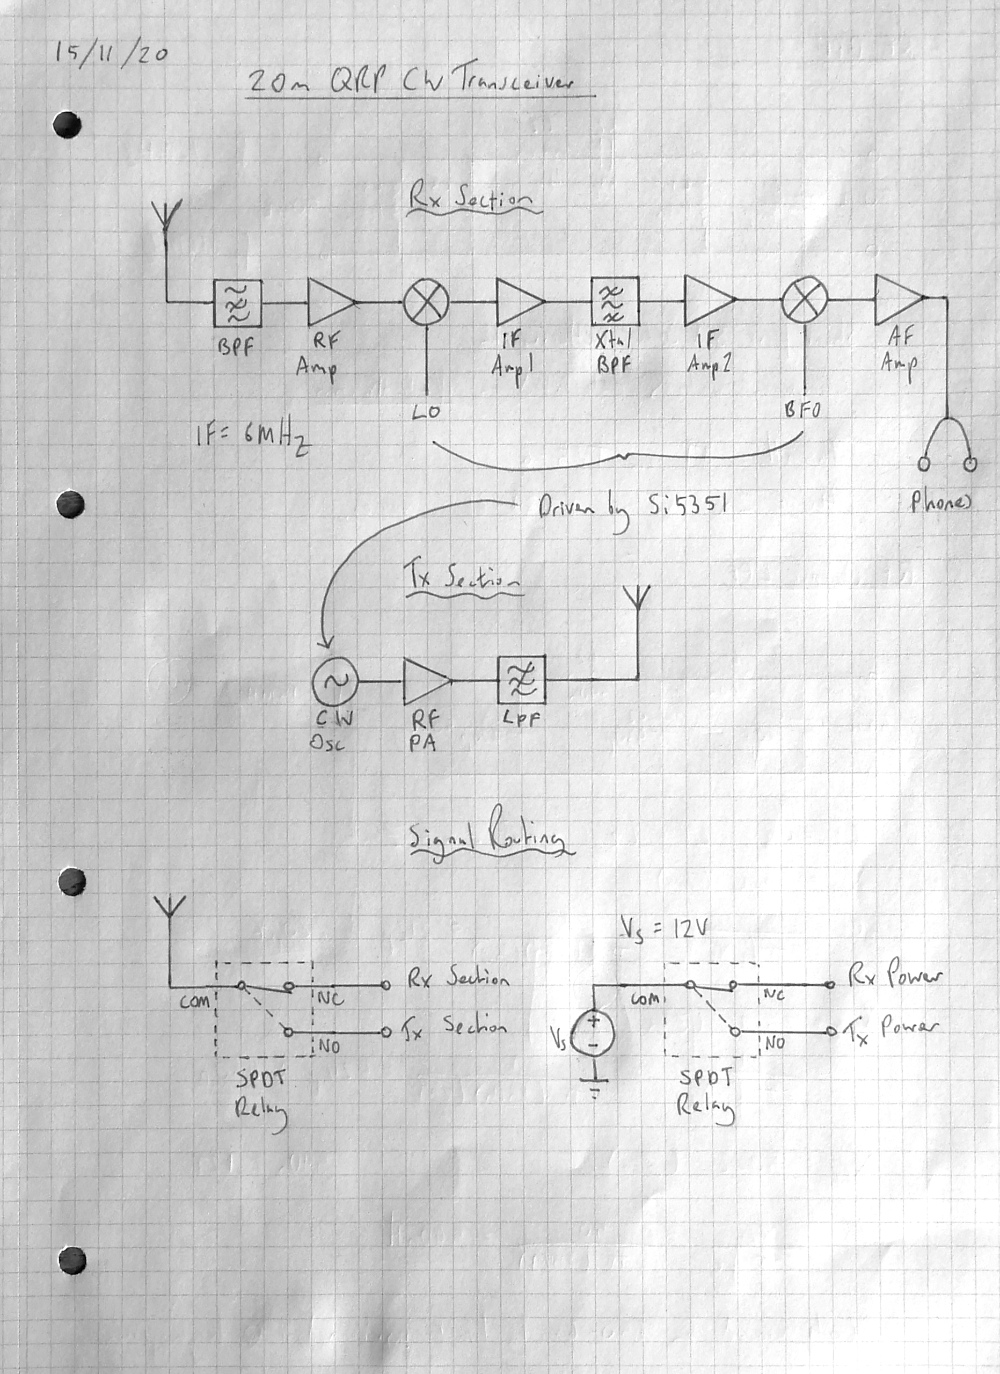 15/11/20
20m QRP CW Transceiver
Rx Section
BPF
RF
Amp
IF
Amp1
Xtal
BPF
IF
Amp2
AF
Amp
LO
BFO
IF = 6MHz
Phones
Driven by Si5351
Tx Section
CW
Osc
RF
PA
LPF
Signal Routing
COM
NC
Rx Section
NO
Tx Section
SPDT
Relay
Vs = 12V
Vs
+
-
COM
NC
Rx Power
NO
Tx Power
SPDT
Relay